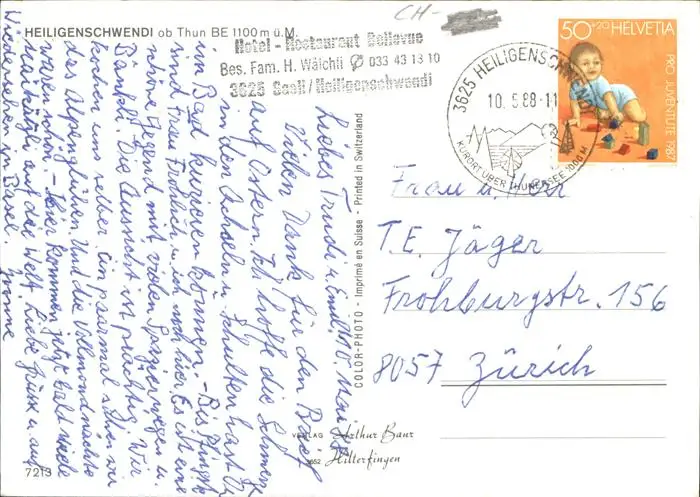 HEILIGENSCHWENDI ob Thun BE 1100 m ü.M.
Hotel - Restaurant Bellevue
Bes. Fam. H. Wälchli 033 43 13 10
3625 Saali/Heiligenschwendi
CH-
50+20 HELVETIA
PRO JUVENTUTE 1987
3625 HEILIGENSCHWENDI
10.5.88-11
KURORT ÜBER THUNERSEE 1000 M
Liebes Trudi u. Emil, 10. Mai
Vielen Dank für den Brief
auf Ostern. Ich hoffe die Schmerzen
in den Achseln u. Schultern hast Du
im Bad kurieren können. - Bis Pfingsten
sind Frau Fröhlich u. ich noch hier. Es ist eine
schöne Gegend mit vielen Spazierwegen u.
Bänkli. Die Aussicht ist prächtig. Wir
kochen selber. Ein paarmal sahen wir
das Alpenglühen. Und die Vollmondnächte
waren schön. - Hier kommen jetzt bald viele
auf die Welt. Liebe Grüsse u. auf
Wiedersehen in Basel.
Frau u. Herr
T.E. Jäger
Frohburgstr. 156
8057 Zürich
COLOR-PHOTO - Imprimé en Suisse - Printed in Switzerland
VERLAG Arthur Baur
3652 Hilterfingen
7213